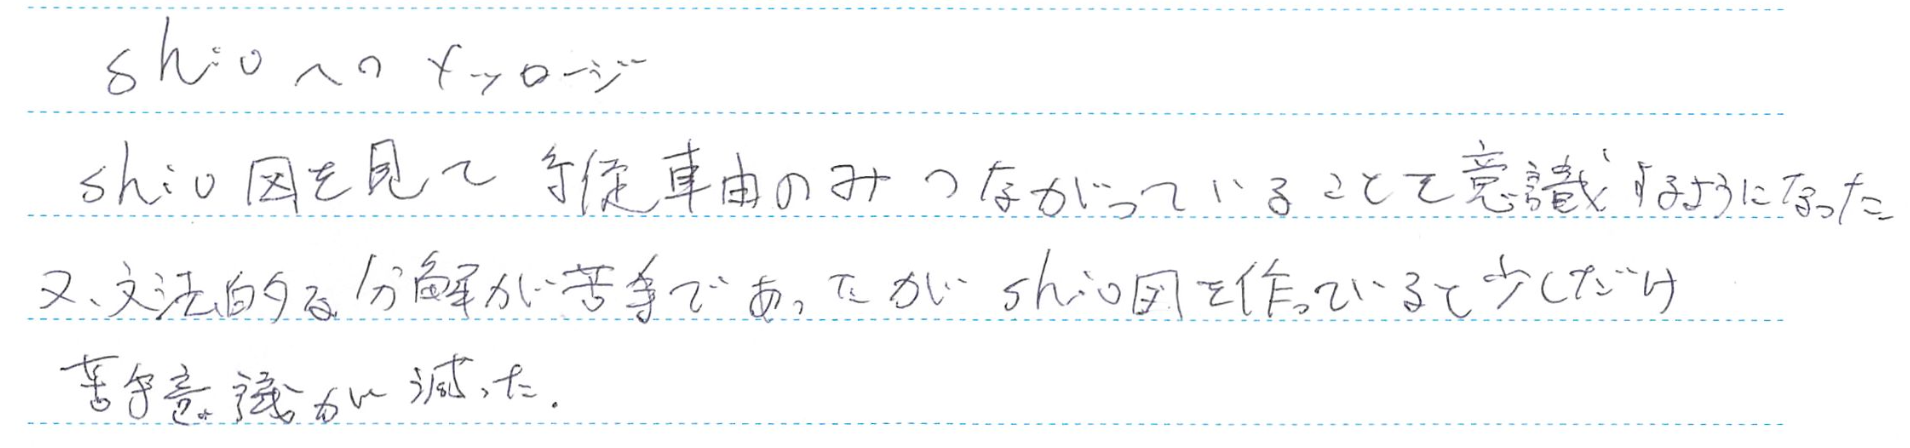 shioへのメッセージ
shio図を見て 主従車由のみつながっていることを意識するようになった
又、文法的な分解が苦手であったがshio図を作っていると少しだけ
苦手意識が減った.